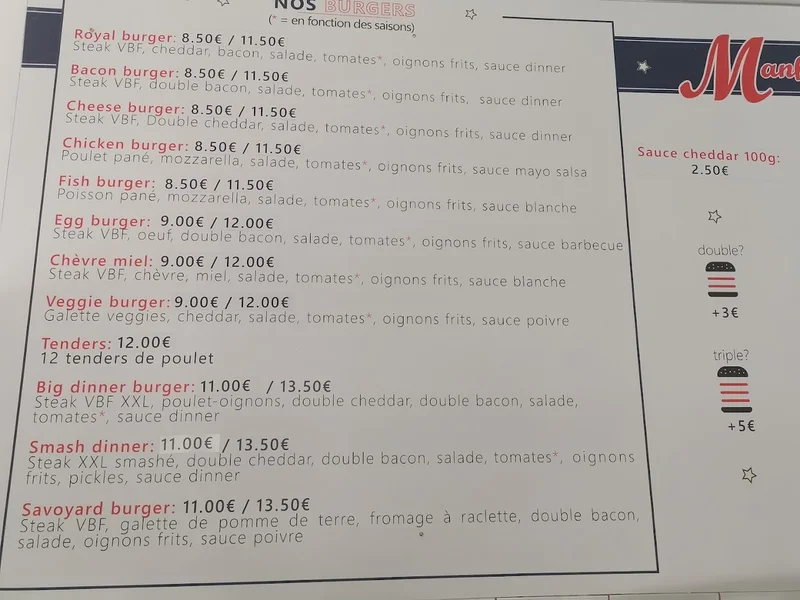 NOS BURGERS
(* = en fonction des saisons)
Royal burger: 8.50€ / 11.50€
Steak VBF, cheddar, bacon, salade, tomates*, oignons frits, sauce dinner
Bacon burger: 8.50€ / 11.50€
Steak VBF, double bacon, salade, tomates*, oignons frits, sauce dinner
Cheese burger: 8.50€ / 11.50€
Steak VBF, Double cheddar, salade, tomates*, oignons frits, sauce dinner
Chicken burger: 8.50€ / 11.50€
Poulet pané, mozzarella, salade, tomates*, oignons frits, sauce mayo salsa
Fish burger: 8.50€ / 11.50€
Poisson pané, mozzarella, salade, tomates*, oignons frits, sauce blanche
Egg burger: 9.00€ / 12.00€
Steak VBF, oeuf, double bacon, salade, tomates*, oignons frits, sauce barbecue
Chèvre miel: 9.00€ / 12.00€
Steak VBF, chèvre, miel, salade, tomates*, oignons frits, sauce blanche
Veggie burger: 9.00€ / 12.00€
Galette veggies, cheddar, salade, tomates*, oignons frits, sauce poivre
Tenders: 12.00€
12 tenders de poulet
Big dinner burger: 11.00€ / 13.50€
Steak VBF XXL, poulet-oignons, double cheddar, double bacon, salade,
tomates*, sauce dinner
Smash dinner: 11.00€ / 13.50€
Steak XXL smashé, double cheddar, double bacon, salade, tomates*, oignons
frits, pickles, sauce dinner
Savoyard burger: 11.00€ / 13.50€
Steak VBF, galette de pomme de terre, fromage à raclette, double bacon,
salade, oignons frits, sauce poivre
Sauce cheddar 100g:
2.50€
double?
+3€
triple?
+5€